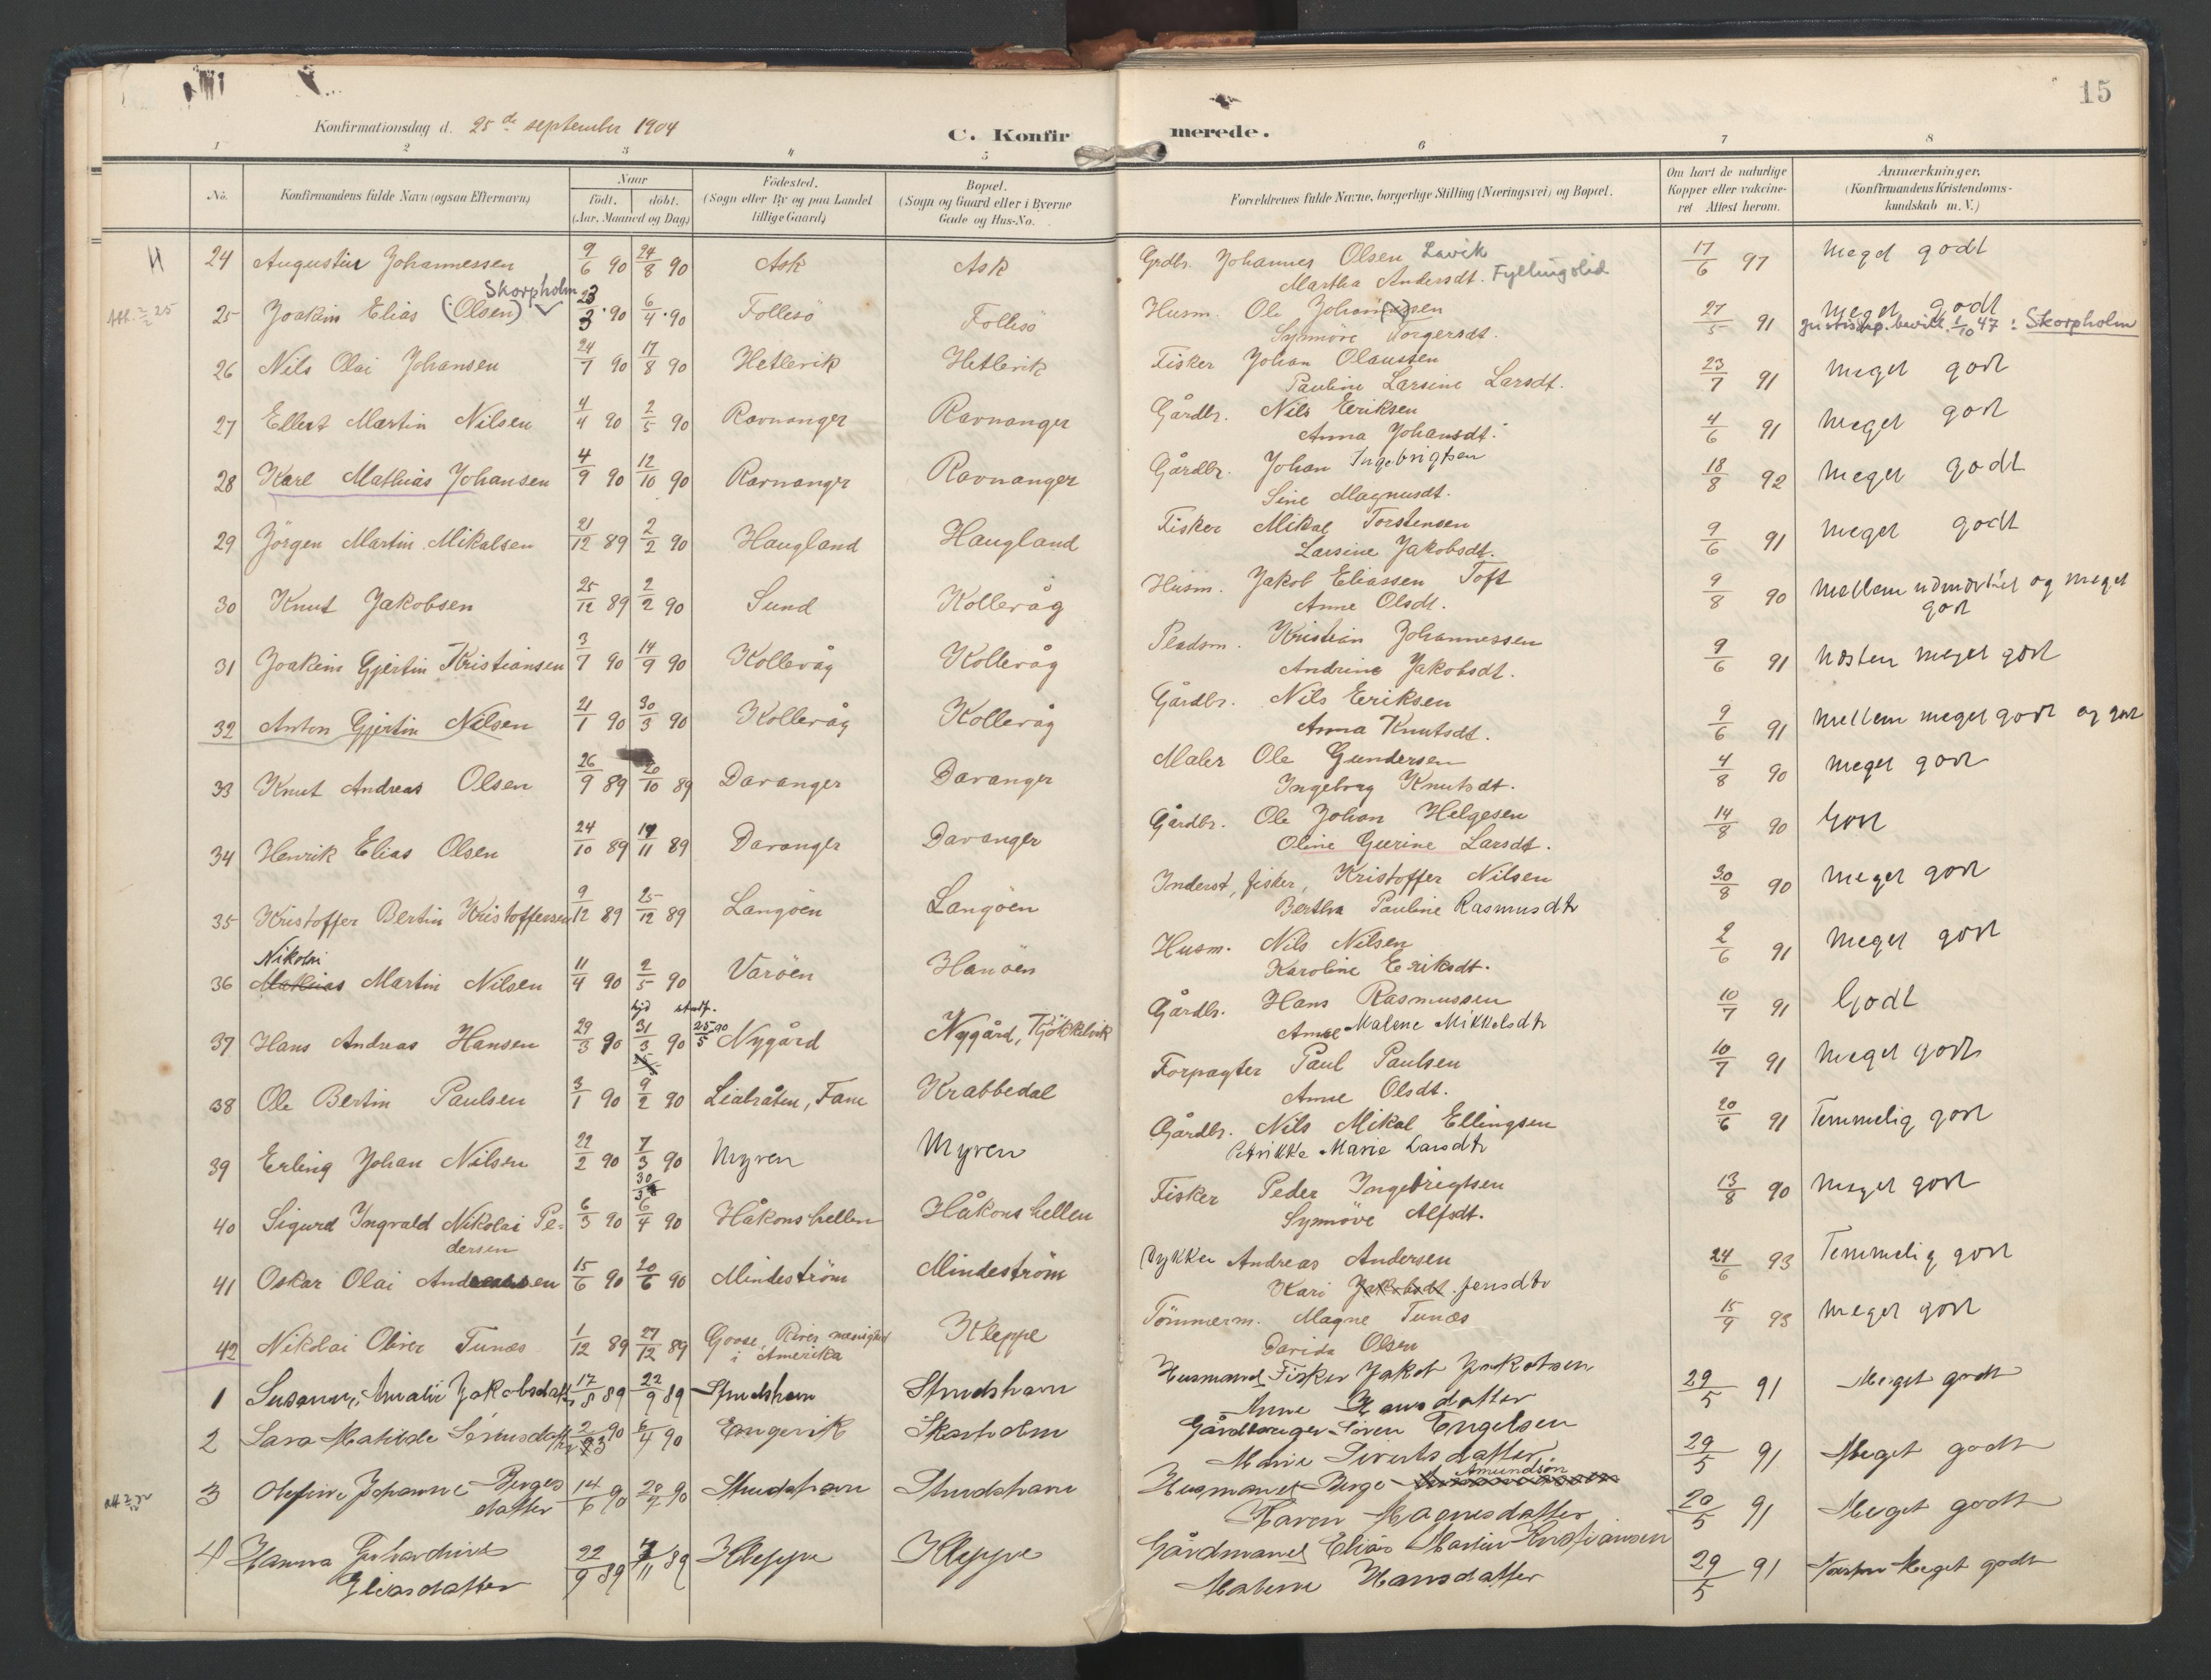 15
Konfirmationsdag d. 25de september 1904
C. Konfirmerede.
1 2 3 4 5 6 7 8
No. Konfirmandens fulde Navn (ogsaa Efternavn) Naar Födt. döbt. (Aar, Maaned og Dag) Födested. (Sogn eller By og paa Landet tillige Gaard) Bopæl. (Sogn og Gaard eller i Byerne Gade og Hus-No. Forældrenes fulde Navne, borgerlige Stilling (Næringsvei) og Bopæl. Om havt de naturlige Kopper eller vakcineret Attest herom. Anmærkninger, (Konfirmandens Kristendomskundskab m. V.)
24 Augustin Johannessen 9/6 90 24/8 90 Ask Ask Grdbr. Johannes Olsen Lavik 17/6 97 Meget godt
Martha Andersdt. Fyllingslid
Skorpholm
25 Joakim Elias (Olsen) 23/3 90 6/4 90 Follesö Follesö Husm. Ole Johannessen 27/5 91 Meget godt
Synnöve Torgersdt. justisdp. bevill. 1/10 47: Skorpholm
26 Nils Olai Johansen 24/7 90 17/8 90 Hetlevik Hetlevik Fisker Johan Olaussen 23/7 91 Meget godt
Pauline Larsine Larsdt.
27 Ellert Martin Nilsen 4/4 90 2/5 90 Ravnanger Ravnanger Gårdbr. Nils Eeriksen 4/6 91 Meget godt
Anna Johansdt.
28 Karl Mathias Johansen 4/9 90 12/10 90 Ravnanger Ravnanger Gårdbr. Johan Ingebrigtsen 18/8 92 Meget godt
Sine Magnusdt.
29 Jörgen Martin Mikalsen 21/12 89 2/2 90 Haugland Haugland Fisker Mikal Torstensen 9/6 91 Meget godt
Larsine Jakobsdt.
30 Knut Jakobsen 25/12 89 2/2 90 Sund Kollevåg Husm. Jakob Eliassen Toft 9/8 90 Mellem udmærket og meget godt
Anne Olsdt.
31 Joakim Gjertin Kristiansen 3/7 90 14/9 90 Kollevåg Kollevåg Pladsm. Kristian Johannessen 9/6 91 Næsten meget godt
Andrine Jakobsdt.
32 Anton Gjertin Nilsen 21/1 90 30/3 90 Kollevåg Kollevåg Gårdbr. Nils Eeriksen 9/6 91 Mellem meget godt og godt
Anna Knutsdt.
33 Knut Andreas Olsen 26/9 89 20/10 89 Davanger Davanger Maler Ole Gundersen 4/8 90 Meget godt
Ingeborg Knutsdt.
34 Henrik Elias Olsen 24/10 89 17/11 89 Davanger Davanger Gårdbr. Ole Johan Helgesen 14/8 90 Godt
Oline Gurine Larsdt.
35 Kristoffer Bertin Kristoffersen 9/12 89 25/12 89 Langöen Langöen Inderst, fisker, Kristoffer Nilsen 30/8 90 Meget godt
Bertha Pauline Rasmusdtr
Nikolai
36 Mathias Martin Nilsen 11/4 90 2/5 90 Varöen Hanöen Husm. Nils Nilsen 2/6 91 Meget godt
Karoline Eriksdt.
37 Hans Andreas Hansen 29/3 90 31/3 90 25/5 90 Nygård Nygård, Kjökkelvik Gårdbr. Hans Rasmussen 10/7 91 Godt
Anne Malene Mikkelsdtr
38 Ole Bertin Paulsen 3/1 90 9/2 90 Liabråten, Fane Krabbedal Forpagter Paul Paulsen 10/7 91 Meget godt
Anne Olsdt.
39 Erling Johan Nilsen 22/2 90 7/3 90 Myren Myren Gårdbr. Nils Mikal Ellingsen 20/6 91 Temmelig godt
Petrikke Marie Larsdtr
40 Sigurd Ingvald Nikolai Pedersen 6/3 90 6/4 90 Håkonshellen Håkonshellen Fisker Peder Ingebrigtsen 13/8 90 Meget godt
Synnöve Alfsdt.
41 Oskar Olai Andersen 15/6 90 20/6 90 Mindeström Mindeström Dykker Andreas Andersen 24/6 93 Temmelig godt
Kari Jakobsdt. Jensdtr
42 Nikolai Oliver Tunæs 1/12 89 27/12 89 Goose River menighed i Amerika Kleppe Tömmerm. Magne Tunæs 15/9 93 Meget godt
Davida Olsen
1 Susanne Amalie Jakobsdatter 17/8 89 22/9 89 Strudshavn Strudshavn Husmand Fisker Jakob Jakobsen 29/5 91 Meget godt
Anne Hansdatter
2 Sara Matilde Sörensdatter 2/3 90 6/4 90 Engevik Skarholm Gårdbruger Sören Engelsen 29/5 91 Meget godt
Marie Sivertsdatter
3 Olefine Johanne Bergesdatter 14/6 90 20/7 90 Strudshavn Strudshavn Husmand Berge Amundsön 20/5 91 Meget godt
Karen Magnesdatter
4 Hanna Gerhardine Eliasdatter 22/9 89 7/11 89 Kleppe Kleppe Gårdmand Elias Martin Kristiansen 29/5 91 Næsten Meget godt
Malene Hansdatter